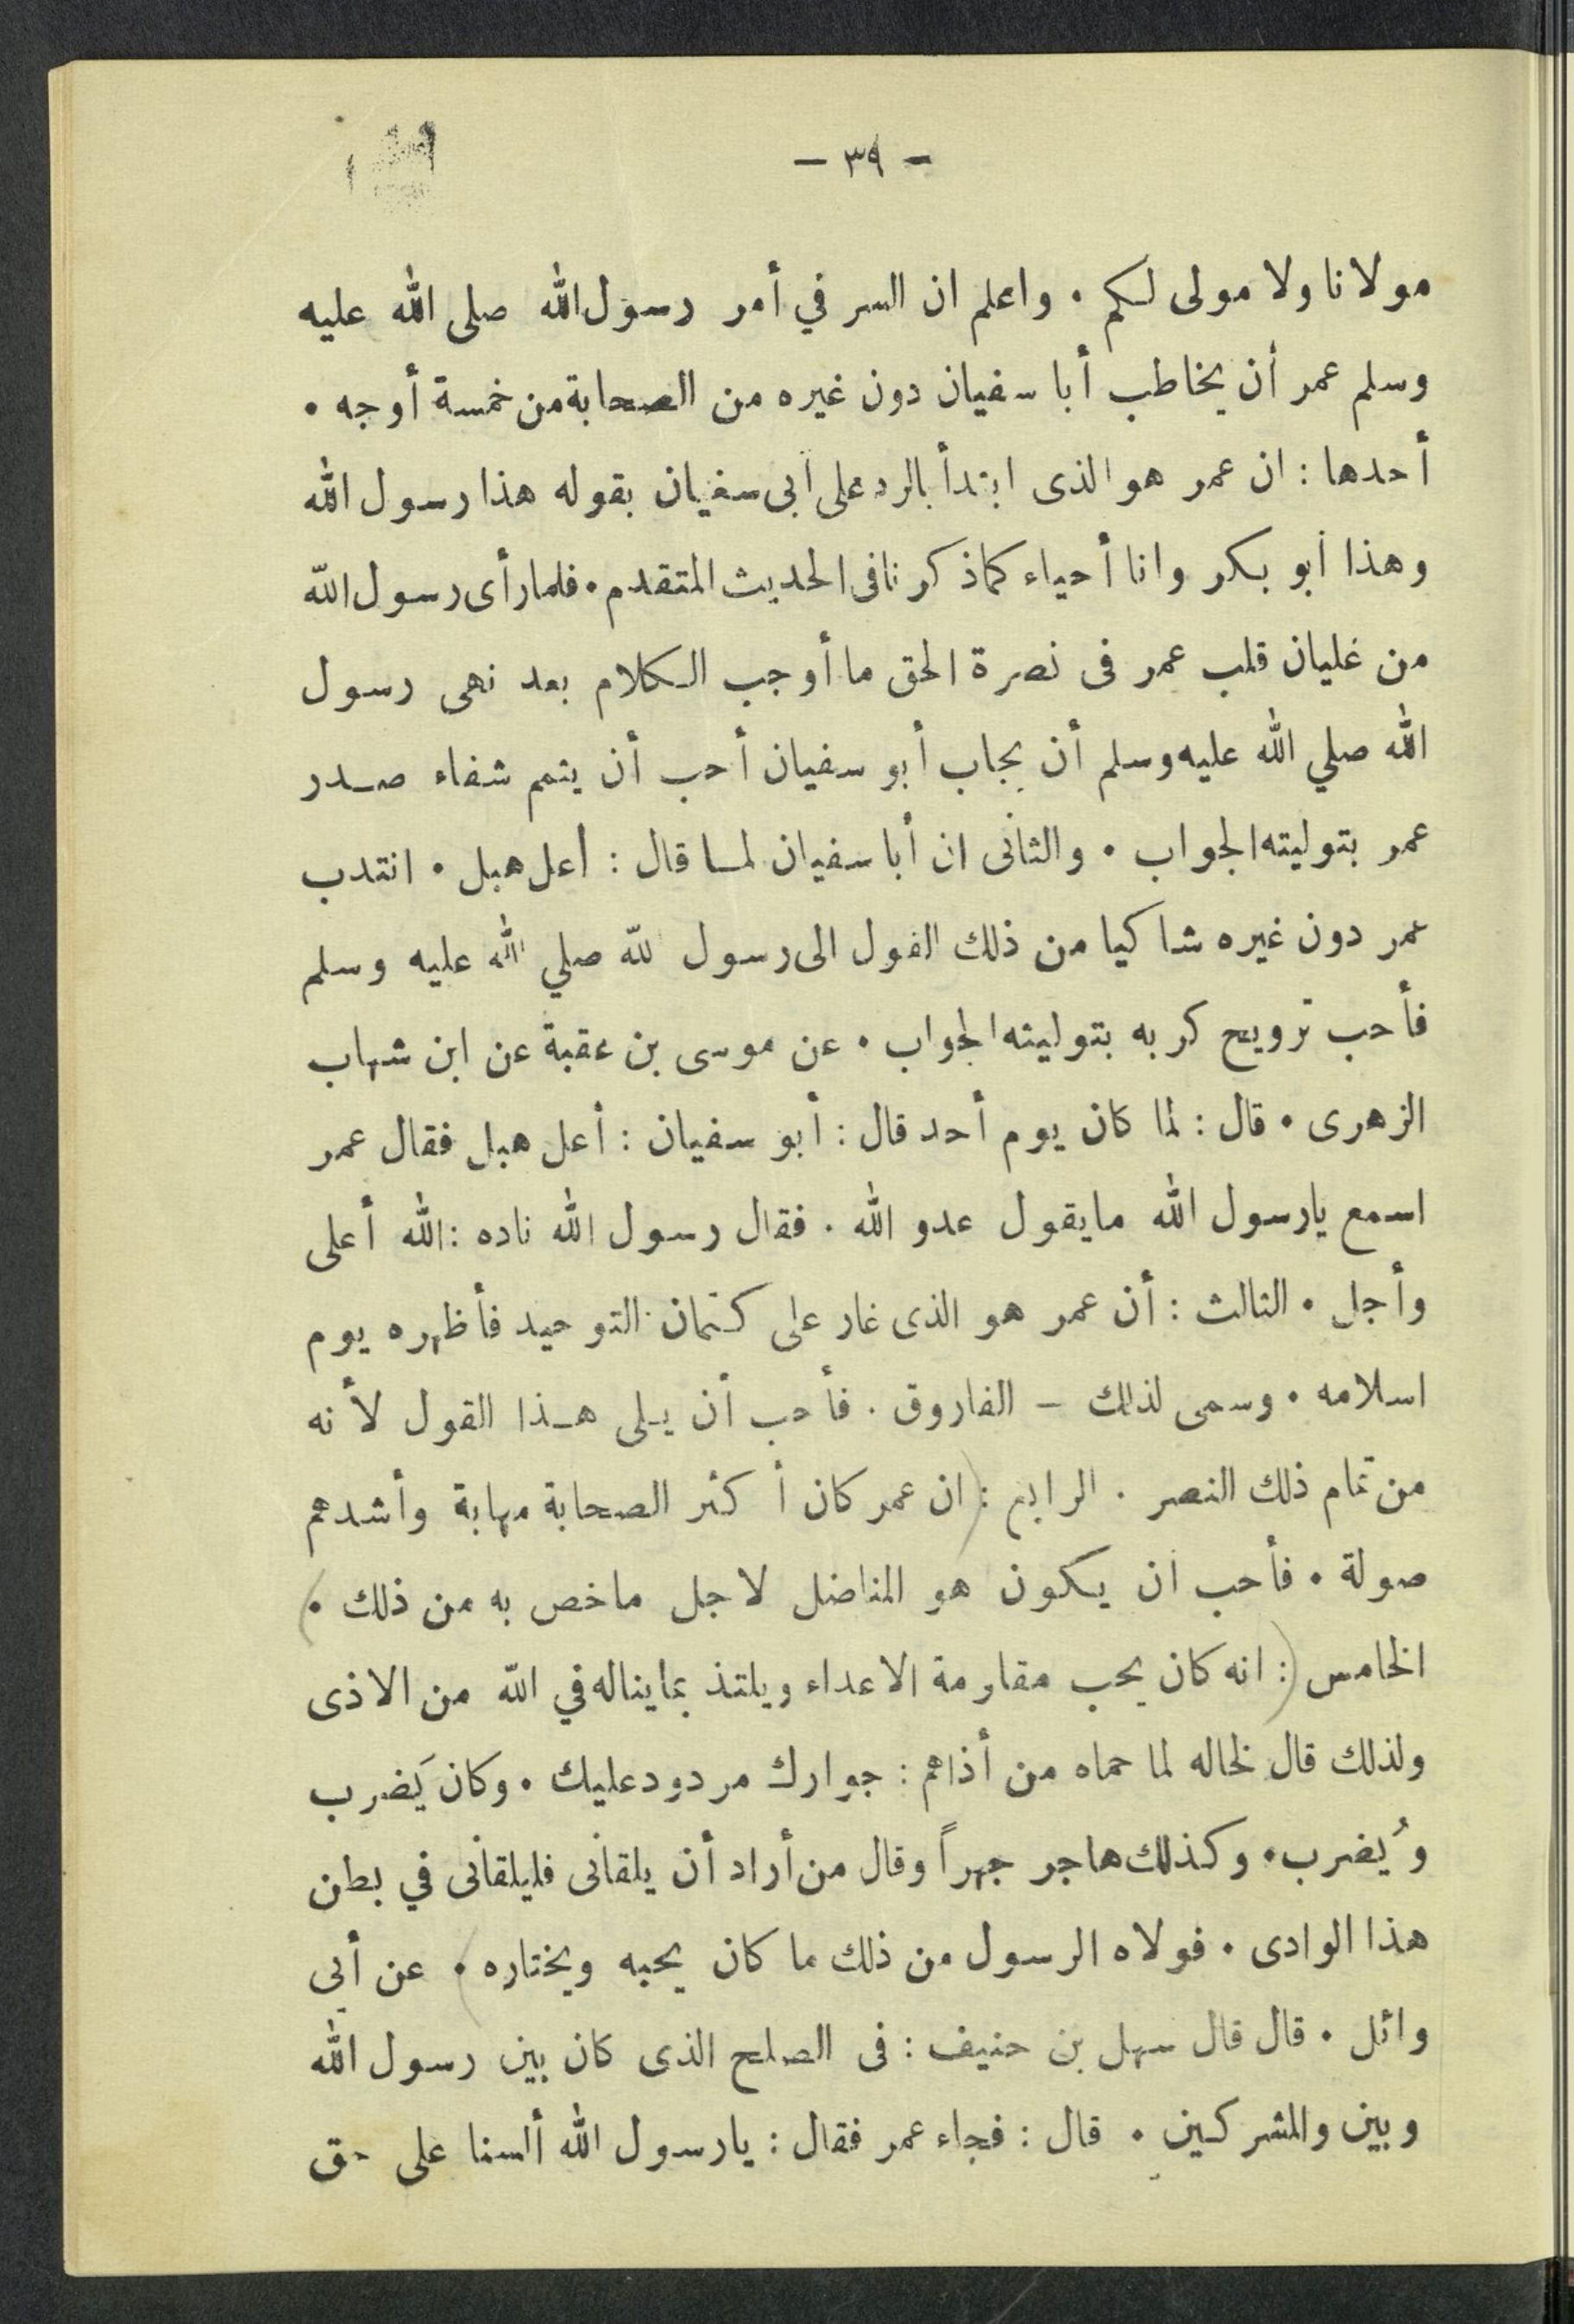 - ٣٩ -
مولانا ولا مولى لكم . واعلم ان السر في أمر رسول الله صلى الله عليه
وسلم عمر أن يخاطب أبا سفيان دون غيره من الصحابة من خمسة أوجه .
أحدها : ان عمر هو الذى ابتدأ بالرد على أبى سفيان بقوله هذا رسول الله
وهذا أبو بكر وانا أحياء كما ذكرنا فى الحديث المتقدم . فلما رأى رسول الله
من غليان قلب عمر فى نصرة الحق ما أوجب الكلام بعد نهى رسول
الله صلي الله عليه وسلم أن يجاب أبو سفيان أحب أن يتمم شفاء صدر
عمر بتوليته الجواب . والثانى ان أبا سفيان لما قال : أعل هبل . انتدب
عمر دون غيره شاكيا من ذلك القول الى رسول لله صلي الله عليه وسلم
فأحب ترويح كربه بتوليته الجواب . عن موسى بن عقبة عن ابن شهاب
الزهرى . قال : لما كان يوم أحد قال : أبو سفيان : أعل هبل فقال عمر
اسمع يارسول الله مايقول عدو الله . فقال رسول الله ناده : الله أعلى
وأجل . الثالث : أن عمر هو الذى غار على كتمان التوحيد فأظهره يوم
اسلامه . وسمى لذلك - الفاروق . فأحب أن يلى هذا القول لأنه
من تمام ذلك النصر . الرابع : (ان عمر كان أكثر الصحابة مهابة وأشدهم
صولة . فأحب أن يكون هو المناضل لاجل ماخص به من ذلك .)
الخامس (: انه كان يحب مقاومة الاعداء ويلتذ بما يناله في الله من الاذى
ولذلك قال لخاله لما حماه من أذاهم : جوارك مردود عليك . وكان يَضرب
ويُضرب . وكذلك هاجر جهراً وقال من أراد أن يلقانى فليلقانى في بطن
هذا الوادى . فولاه الرسول من ذلك ما كان يحبه ويختاره ) . عن أبى
وائل . قال قال سهل بن حنيف : فى الصلح الذى كان بين رسول الله
وبين والمشركين . قال : فجاء عمر فقال : يارسول الله ألسنا على حق